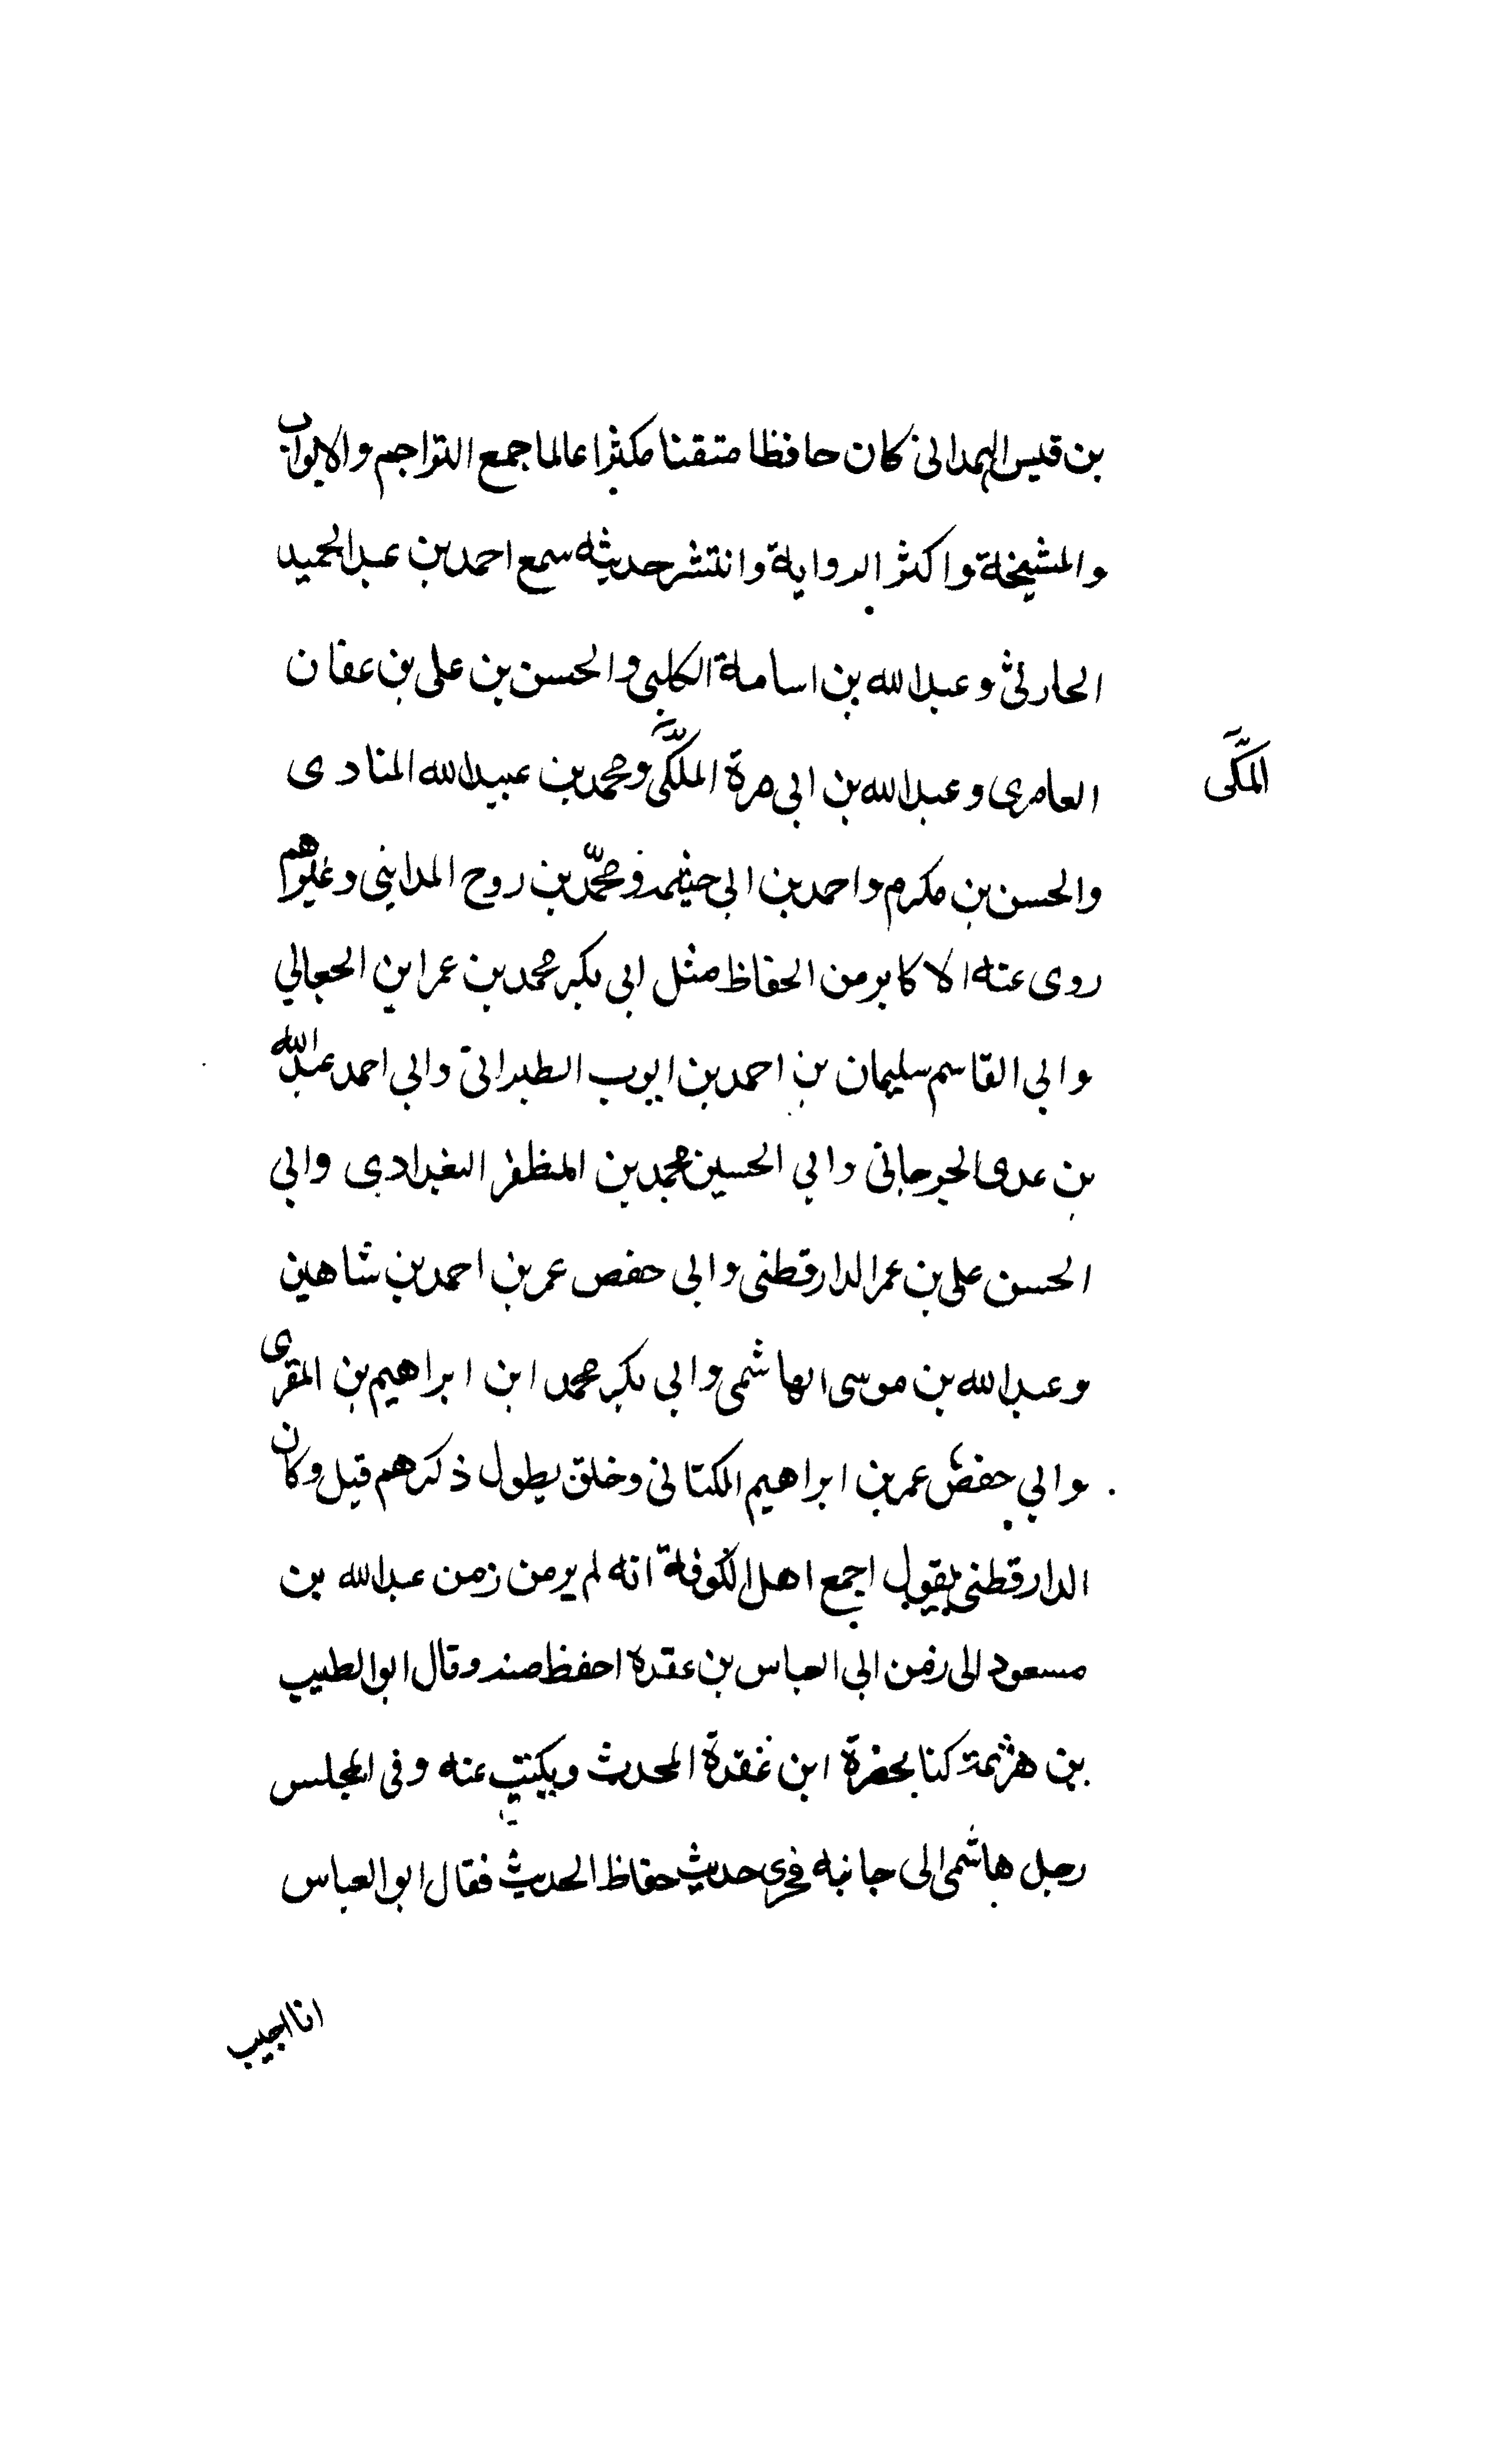 بن قيس الهمداني كان حافظا متقنا مكثرا عالما جمع التراجم والابواب
والمشيخة واكثر الرواية وانتشر حديثه سمع احمد بن عبد الحميد
الحارثي وعبد الله بن اسامة الكلبي والحسن بن علي بن عفان
العامري وعبد الله بن ابي مرة الملكّي ومحمد بن عبيد الله المنادى
المكّى
والحسن بن مكرم واحمد بن ابي خيثمه ومحمّد بن روح المدايني وغيرهم
روى عنه الاكابر من الحفاظ مثل ابي بكر محمد بن عمر ابن الجعابي
وابي القاسم سليمان بن احمد بن ايوب الطبراني وابي احمد عبد الله
بن عدى الجرجاني وابي الحسين محمد بن المظفر البغدادي وابي
الحسن علي بن عمر الدارقطنى وابي حفص عمر بن احمد بن شاهين
وعبد الله بن موسى الهاشمى وابي بكر محمد ابن ابراهيم بن المقرى
وابي حفص عمر بن ابراهيم الكتاني وخلق يطول ذكرهم قيل وكان
الدارقطنى يقول اجمع اهل الكوفة انه لم ير من زمن عبد الله بن
مسعود الى زمن ابي العباس بن عقدة احفظ منه وقال ابو الطيب
بن هرثمة كنا بحضرة ابن عقدة المحدث ويكتب عنه وفى المجلس
رجل هاشمى الى جانبه فجرى حديث حفاظ الحديث فقال ابو العباس
انا اجيب